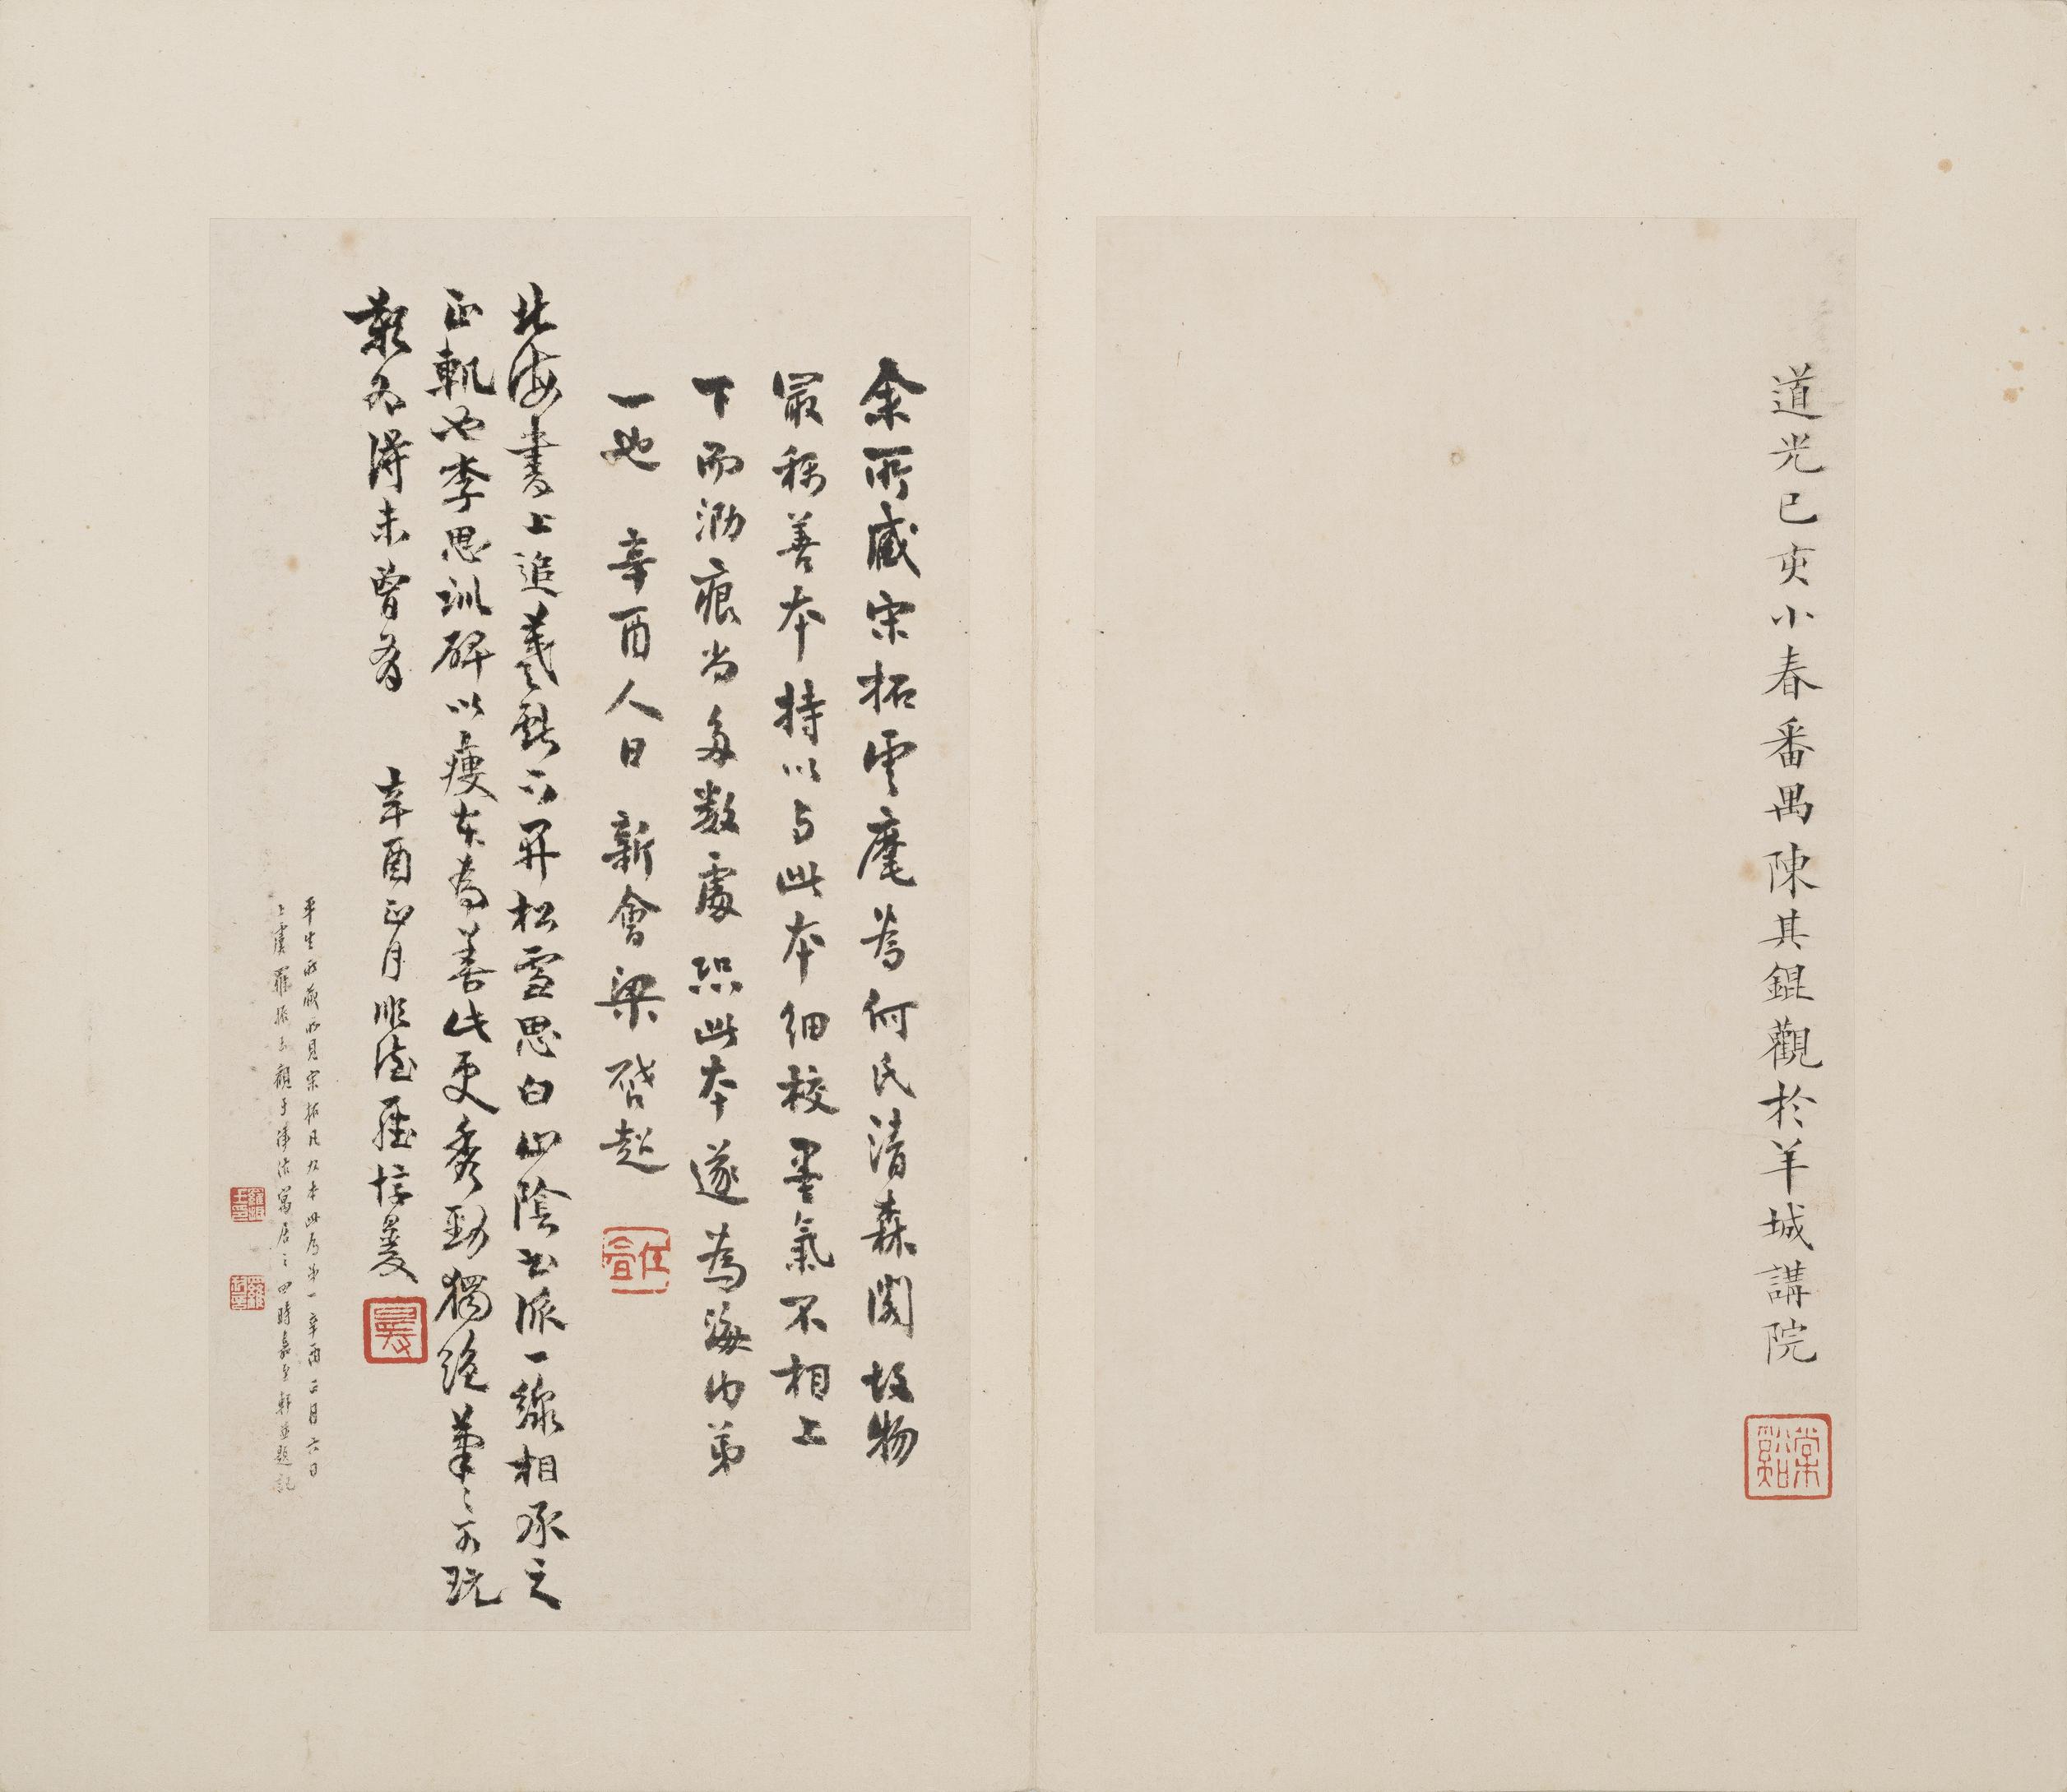 道光己亥小春番禺陳其錕觀於羊城講院
棠谿
余所藏宋拓雲麾為何氏清森閣故物
最稱善本持以与此本細校墨氣不相上
下而泐痕尚多數處然則此本遂為海內弟
一也 辛酉人日新會梁啓超
任公
北海書上追羲獻下開松雪思白山陰書派一線相承之
正軌也李思訓碑以瘦本為善此更秀勁獨絕筆筆可玩
歎為得未曾有 辛酉正月
平生所藏所見宋拓凡九本此為第一辛酉正月六日
上虞羅振玉觀于津沽寓居之四時嘉至軒並題記